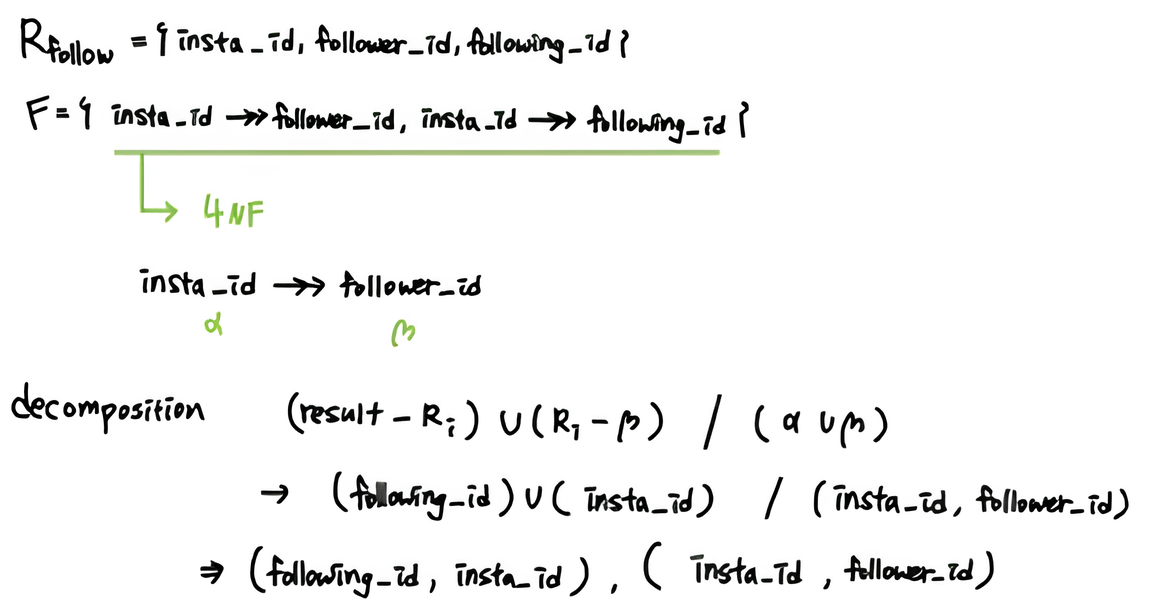 R_follow = { insta_id, follower_id, following_id }
F = { insta_id →→ follower_id, insta_id →→ following_id }
4NF
insta_id →→ follower_id
α β
decomposition (result - Ri) ∪ (Ri - β) / (α ∪ β)
→ (following_id) ∪ (insta_id) / (insta_id, follower_id)
⇒ (following_id, insta_id), (insta_id, follower_id)